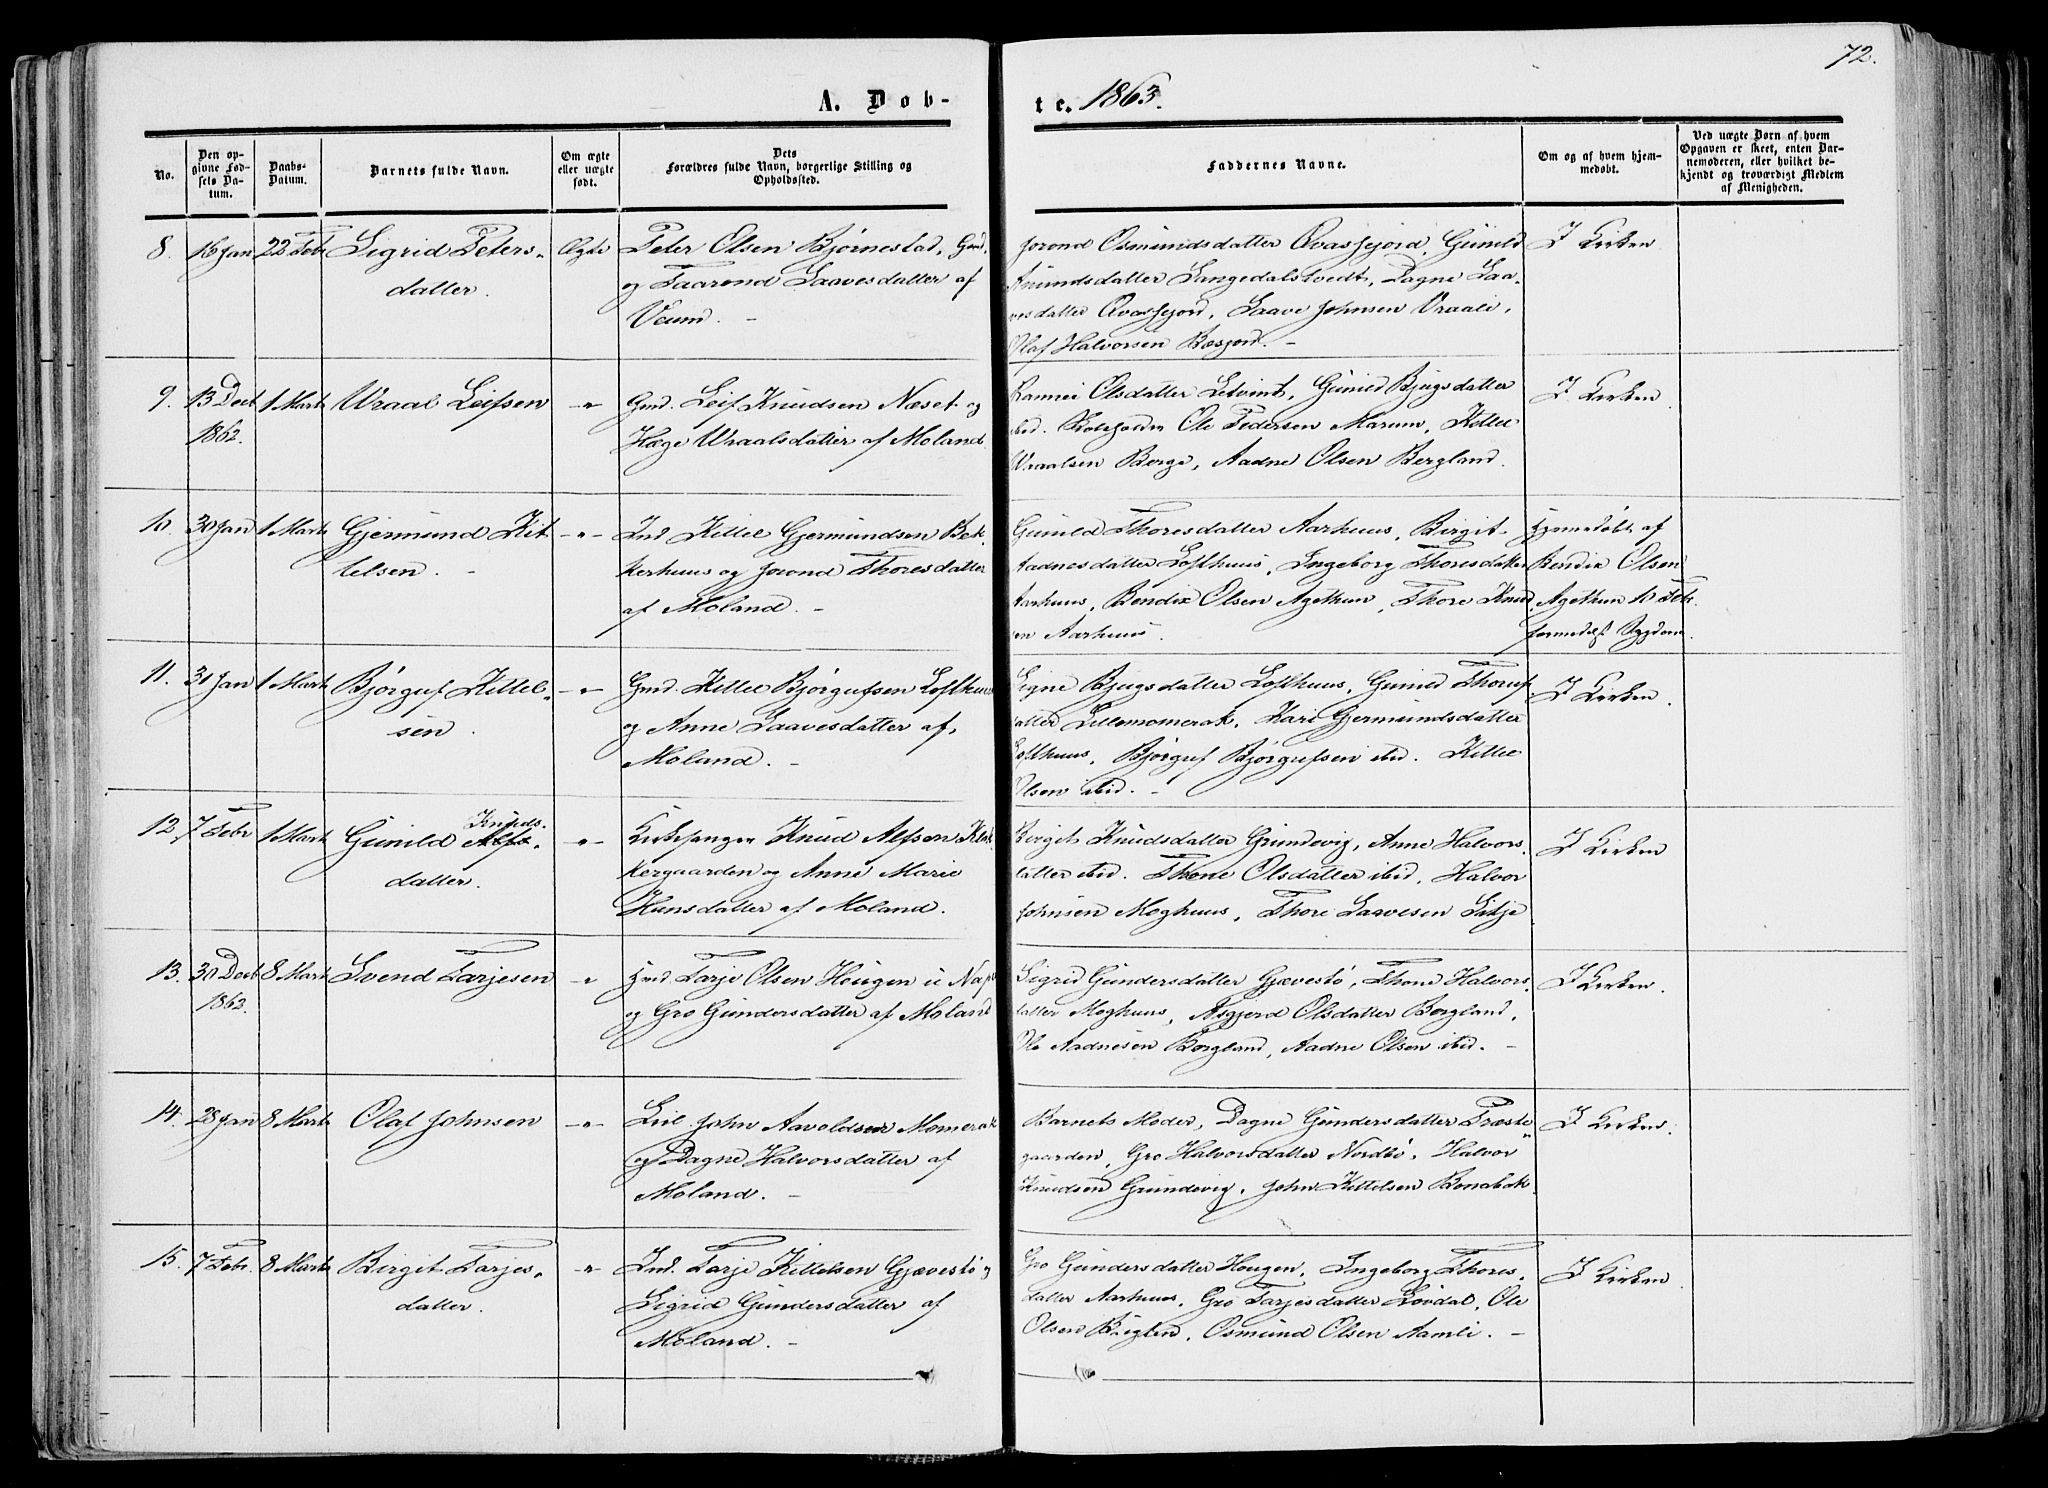 72.
A. Døb-
te. 1863.
No.
Den op-
givne Fød-
sels Da-
tum.
Daabs-
Datum.
Barnets fulde Navn.
Om ægte
eller uægte
født.
Dets
Forældres fulde Navn, borgerlige Stilling og
Opholdssted.
Faddernes Navne.
Om og af hvem hjem-
medøbt.
Ved uægte Børn af hvem
Opgaven er skeet, enten Bar-
nemoderen, eller hvilket be-
kjendt og troværdigt Medlem
af Menigheden.
8. 16 Jan 22 Febr Sigrid Peters- Ægte Peter Olsen Bjørnestad, Gmd.
datter. og Taarond Laavesdatter af
Veum. -
Jorond Osmundsdatter Qvasfjord, Gunild I Kirken
Anundsdatter Langedalstvedt, Dagne Laa-
vesdatter Qvasfjord, Laave Johnsen Vraali,
Olaf Halvorsen Bæsjord. -
9. 13 Decb 1 Marts Wraal Leifsen -"- Gmd. Leif Knudsen Næset og
1862. Hæge Wraalsdatter af Moland
Rannei Olsdatter Letvint, Gunild Bjugsdatter I Kirken
ibid. Ole Pedersen Marum, Kittel
Wraalsen Berge, Aadne Olsen Bergland.
10. 30 Jan 1 Marts Gjermund Kit- -"- Ind Kittel Gjermundsen Bek-
telsen. - kerhuus og Jorond Thoresdatter
af Moland. -
Gunild Thoresdatter Aarhuus, Birgit Hjemmedøbt af
Aadnesdatter Lofthuus, Ingeborg Thoresdatter Bendix Olsen
Aarhuus, Bendix Olsen Agethun, Thore Knud- Agethun 10 Febr.
sen Aarhuus. formedelst Sygdom.
11. 30 Jan 1 Marts Bjørguf Kittel- -"- Gmd. Kittel Bjørgufsen Lofthuus
sen. og Anne Laavesdatter af
Moland. -
Signe Bjugsdatter Lofthuus, Gunild Thorufs- I Kirken
datter Lillemomerak, Kari Gjermundsdatter
Lofthuus, Bjørguf Bjørgufsen ibid. Kittel
Olsen ibid. -
12. 7 Febr 1 Marts Gunild Knuds- -"- Kirkesanger Knud Alfsen Klok-
datter. kergaarden og Anne Marie
Hansdatter af Moland.
Birgit Knudsdatter Grundevig, Anne Halvors- I Kirken
datter ibid. Thone Olsdatter ibid, Halvor
Johnsen Moghuus, Thore Laavesen Litje
13. 30 Decb 8 Marts Svend Tarjesen -"- Gmd Tarje Olsen Hougen i Næs
1862. og Gro Gundersdatter af Moland
Sigrid Gundersdatter Gjævestø, Thone Halvors- I Kirken.
datter Moghuus, Asgjerd Olsdatter Bergland,
Ole Aadnesen Bergland, Aadne Olsen ibid. -
14. 28 Jan 8 Marts Olaf Johnsen -"- Leil. John Aavoldsen Momerak
og Dagne Halvorsdatter af
Moland. -
Barnets Moder, Dagne Gundersdatter Præste- I Kirken.
gaarden, Gro Halvorsdatter Nordbø, Halvor
Knudsen Grundevig, John Kittelsen Bondebak.
15. 7 Febr. 8 Marts Birgit Tarjes- -"- Ind. Tarje Kittelsen Gjævestø og
datter. Sigrid Gundersdatter af
Moland. -
Gro Gundersdatter Hougen, Ingeborg Thores- I Kirken
datter Aarhuus, Gro Tarjesdatter Løvdal, Ole
Olsen Røgten, Osmund Olsen Aamli. -